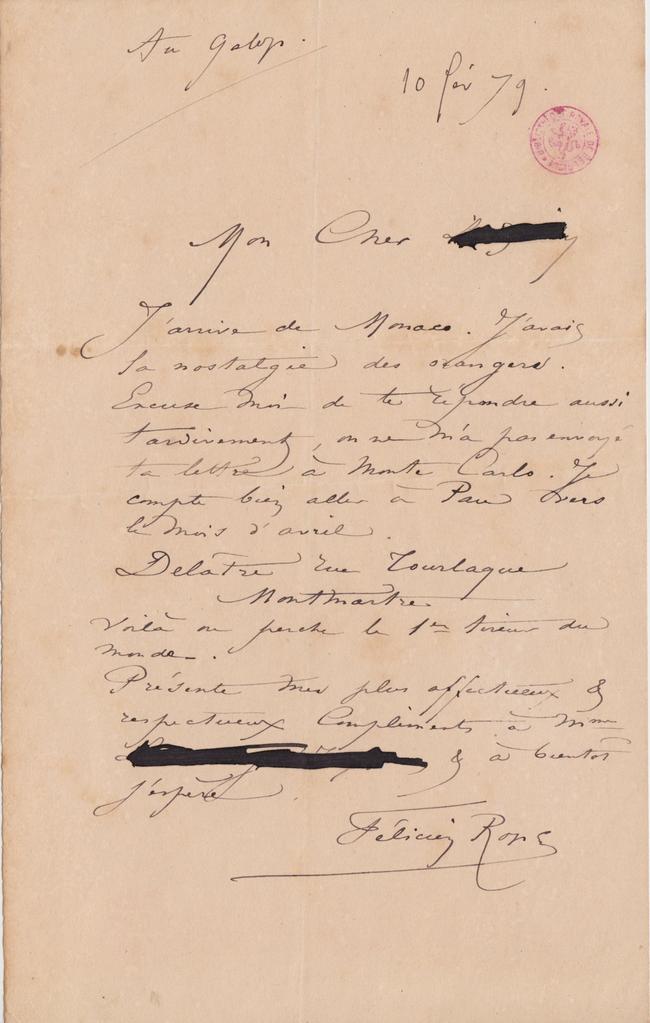 Au galop.
10 fév 79.
BIBLIOTHÈQUE ROYALE DE BELGIQUE
Mon Cher
J'arrive de Monaco. J'avais
la nostalgie des orangers.
Excuse moi de te répondre aussi
tardivement, on ne m'a pas envoyé
ta lettre à Monte Carlo. Je
compte bien aller à Pau vers
le mois d'avril.
Delâtre rue Tourlaque
Montmartre
Voilà où perche le 1er tireur du
monde.
Présente mes plus affectueux &
respectueux Compliments à Mme
& à bientôt
j'espère.
Félicien Rops